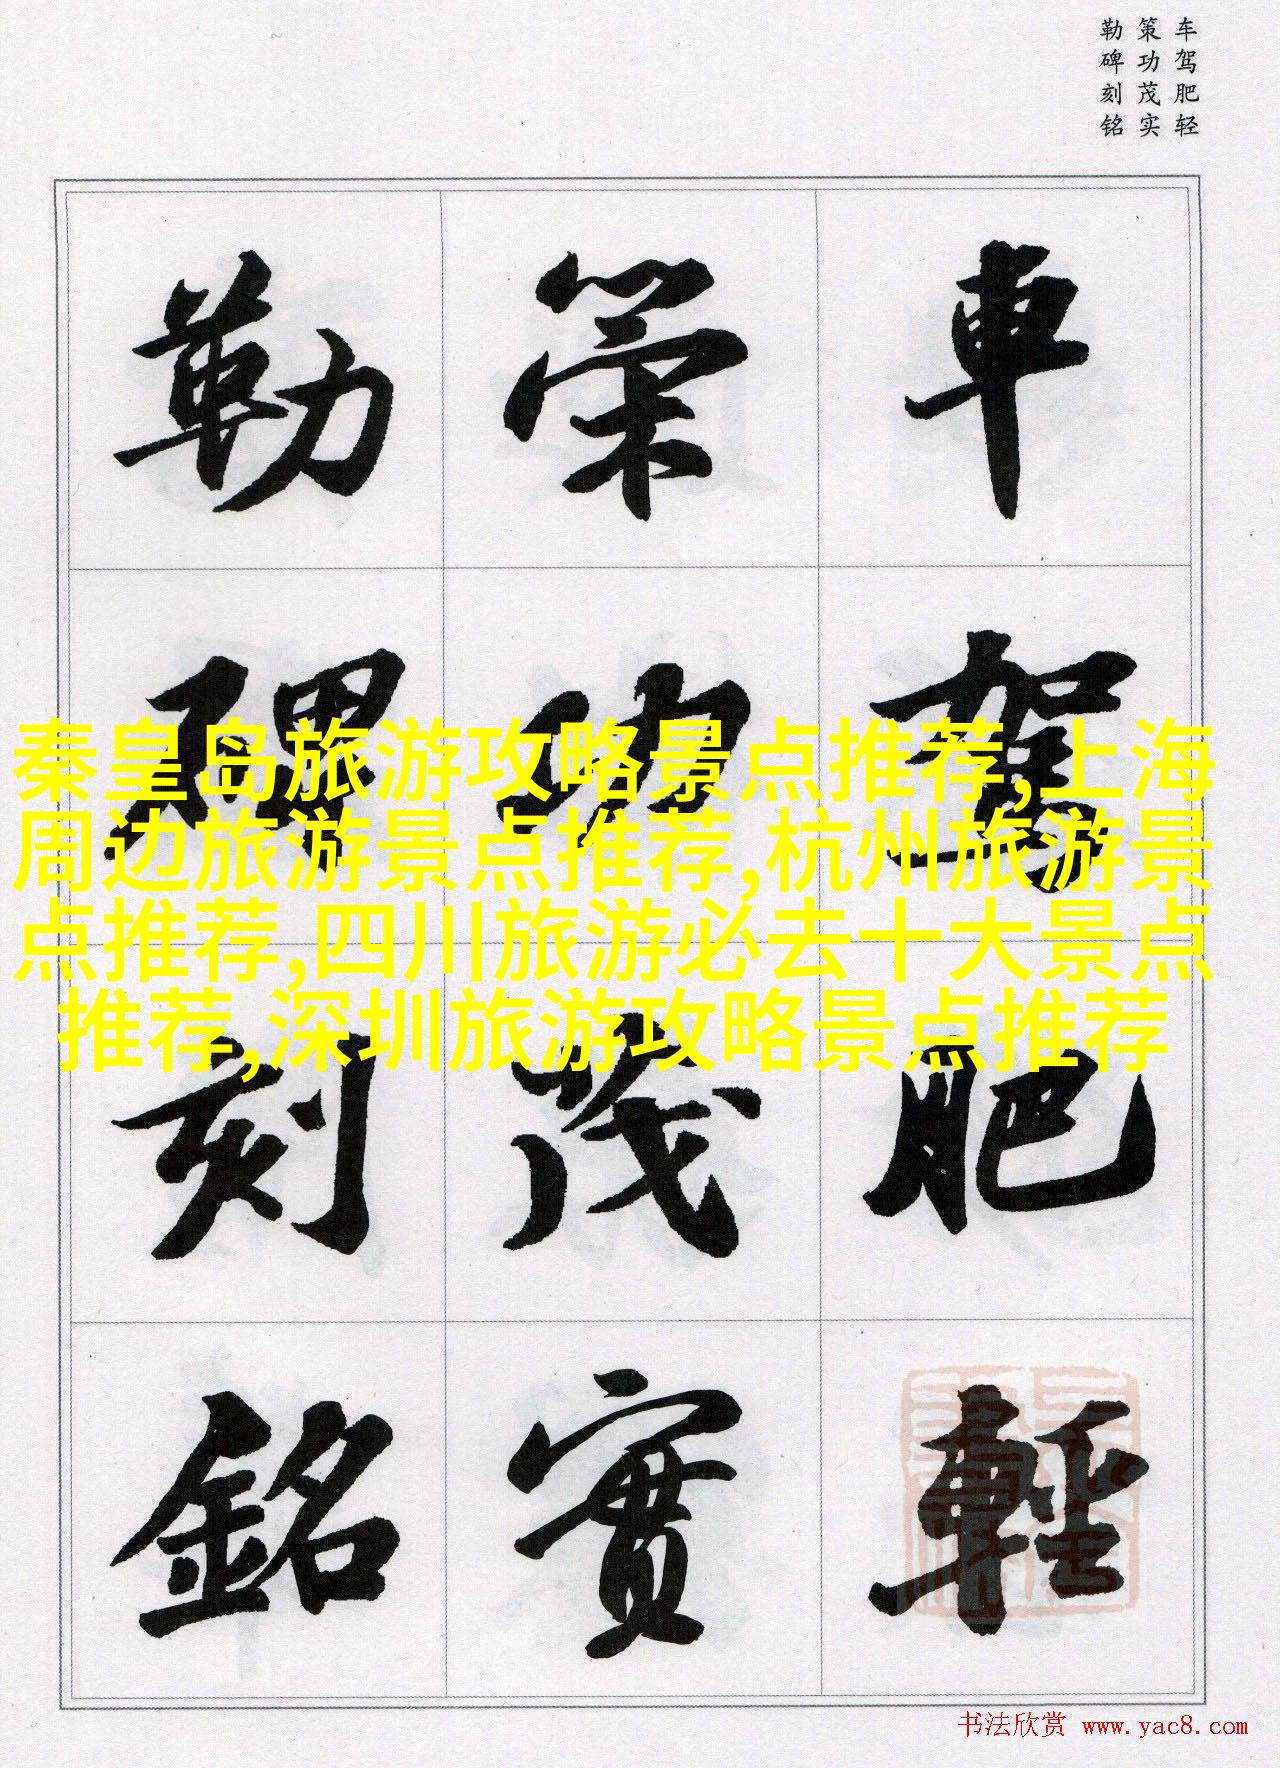 车驾肥轻
策功茂实
勒碑刻铭
車駕肥輕
策功茂實
勒碑刻銘
秦皇岛旅游攻略景点推荐,上海
周边旅游景点推荐,杭州旅游景
点推荐,四川旅游必去十大景点
推荐,深圳旅游攻略景点推荐
书法欣赏 www.yac8.com